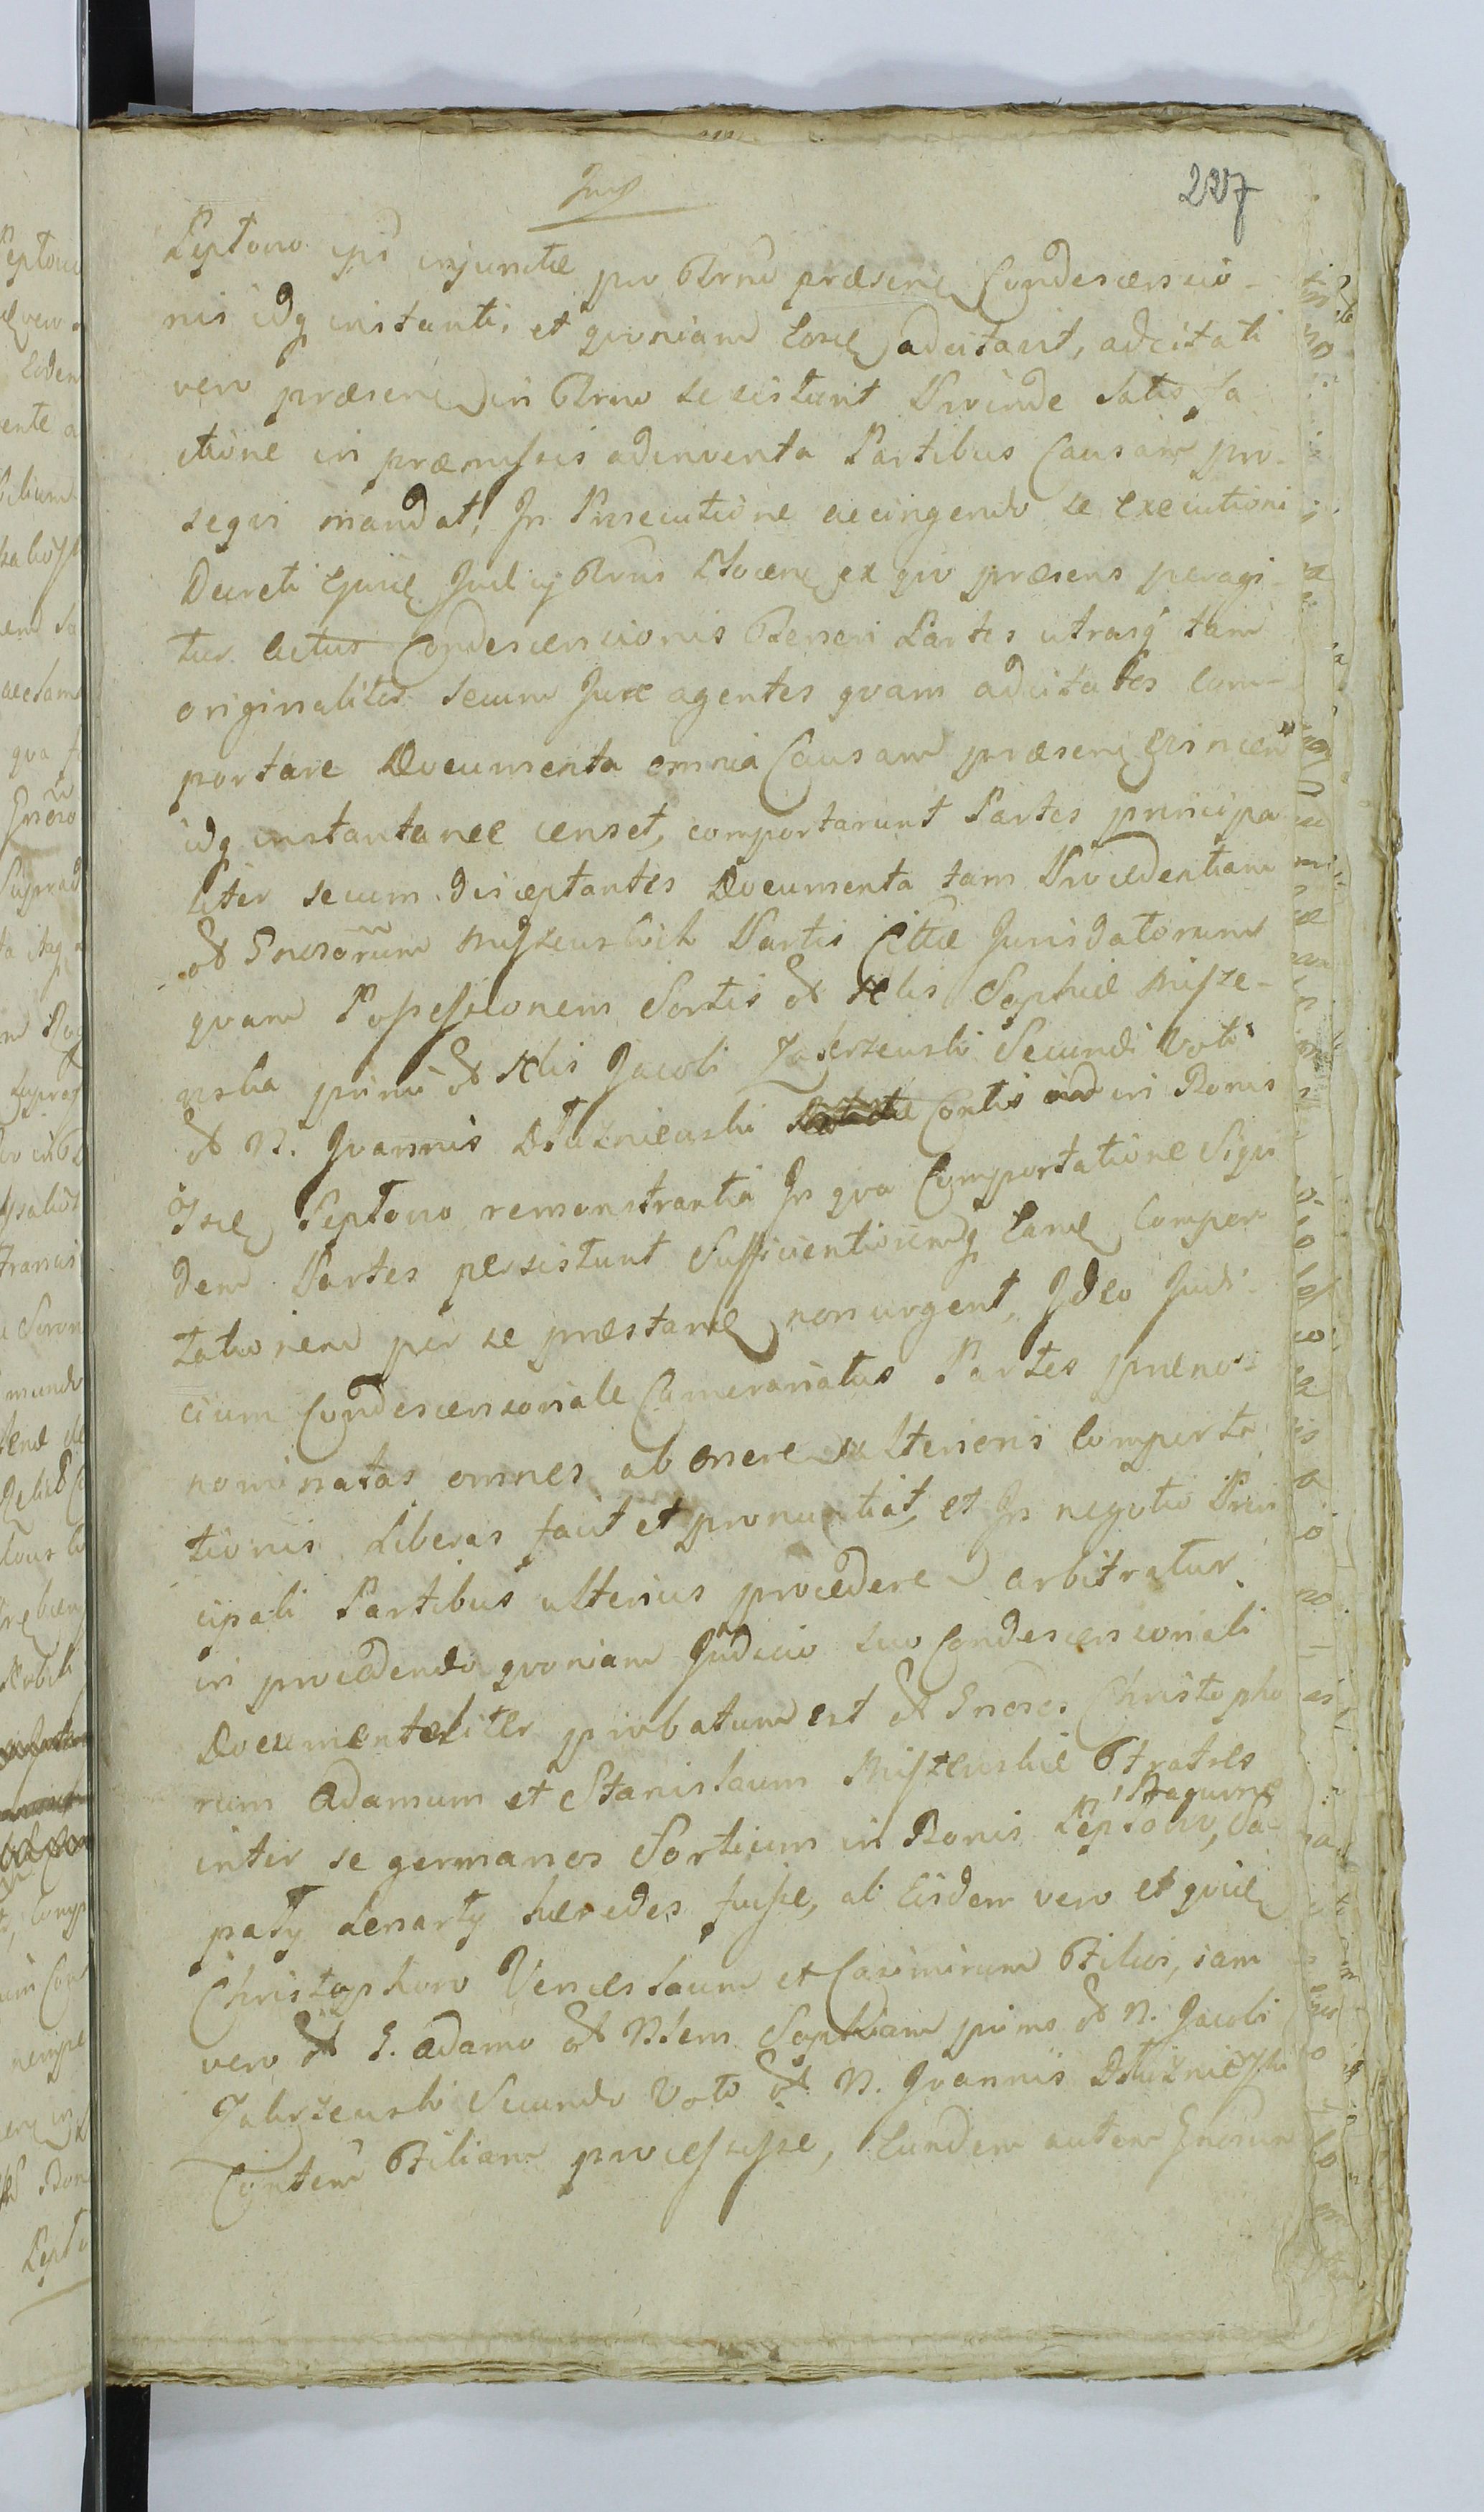 227
Leptowo ejsd injunctæ pro Termo præsenq Condescensio-
nis idq instanti, et quoniam Eosdq adcitavit, adcitati
vero præsenq in Termo se sistunt Proinde Satis fa
ctione in præmissis adinventa Partibus Causam pro-
sequi mandat, In Prosecutione accingendo se executioni
Decreti Ejusdq Judicij Trnis Plocenq ex quo præsens peragi-
tur actus Condescensionis Terreri Partes utrasq tam
originaliter secum Jure agentes quam adcitatas Com-
portare Documenta omnia Causam præsenq
idq instantanee censet, comportarunt Partes principa
liter secum disceptantes Documenta tam Procedentiam
Gnesorum Myszewskich Partis Jurisdatorum
quam Possessionem Sortis Olis Sophiæ Misze-
wska primi Olis Jacobi Zakrzewski Secundi Voti
N. Joannis Dłużniewski Contis in Bonis
Isdq Leptowo remonstrantia In qua Comportatione Siqui
dem Partes persistunt Sufficientioremq Eandq Compor
tationem per se præstandq non urgent, Ideo Judi-
cium Condescensoriale Camerariatus Partes præno-
nominatas omnes ab onere ulterioris Comporta
tionis Liberas facit et pronuntiat, et In negotio Prin
cipali Partibus ulterius procedere arbitratur.
in procedendo quoniam Judicio suo Condescensoriali
Documentaliter probatum est Gnesos Christopho
rum Adamum et Stanislaum Miszewskie Fratres
inter se germanos Sortium in Bonis Leptowo, Stagurne Ca-
paty Lenarty hæredes fuisse, ab Eisdem vero et quidq
Christophoro Venceslaum et Casimirum Filios, iam
vero G. Adamo Nlem Sophiam primo N. Jacobi
Zakrzewski Secundo Voto N. Joannis Dłużniewski
Contem Filiam processisse, Eundem autem Gnesum